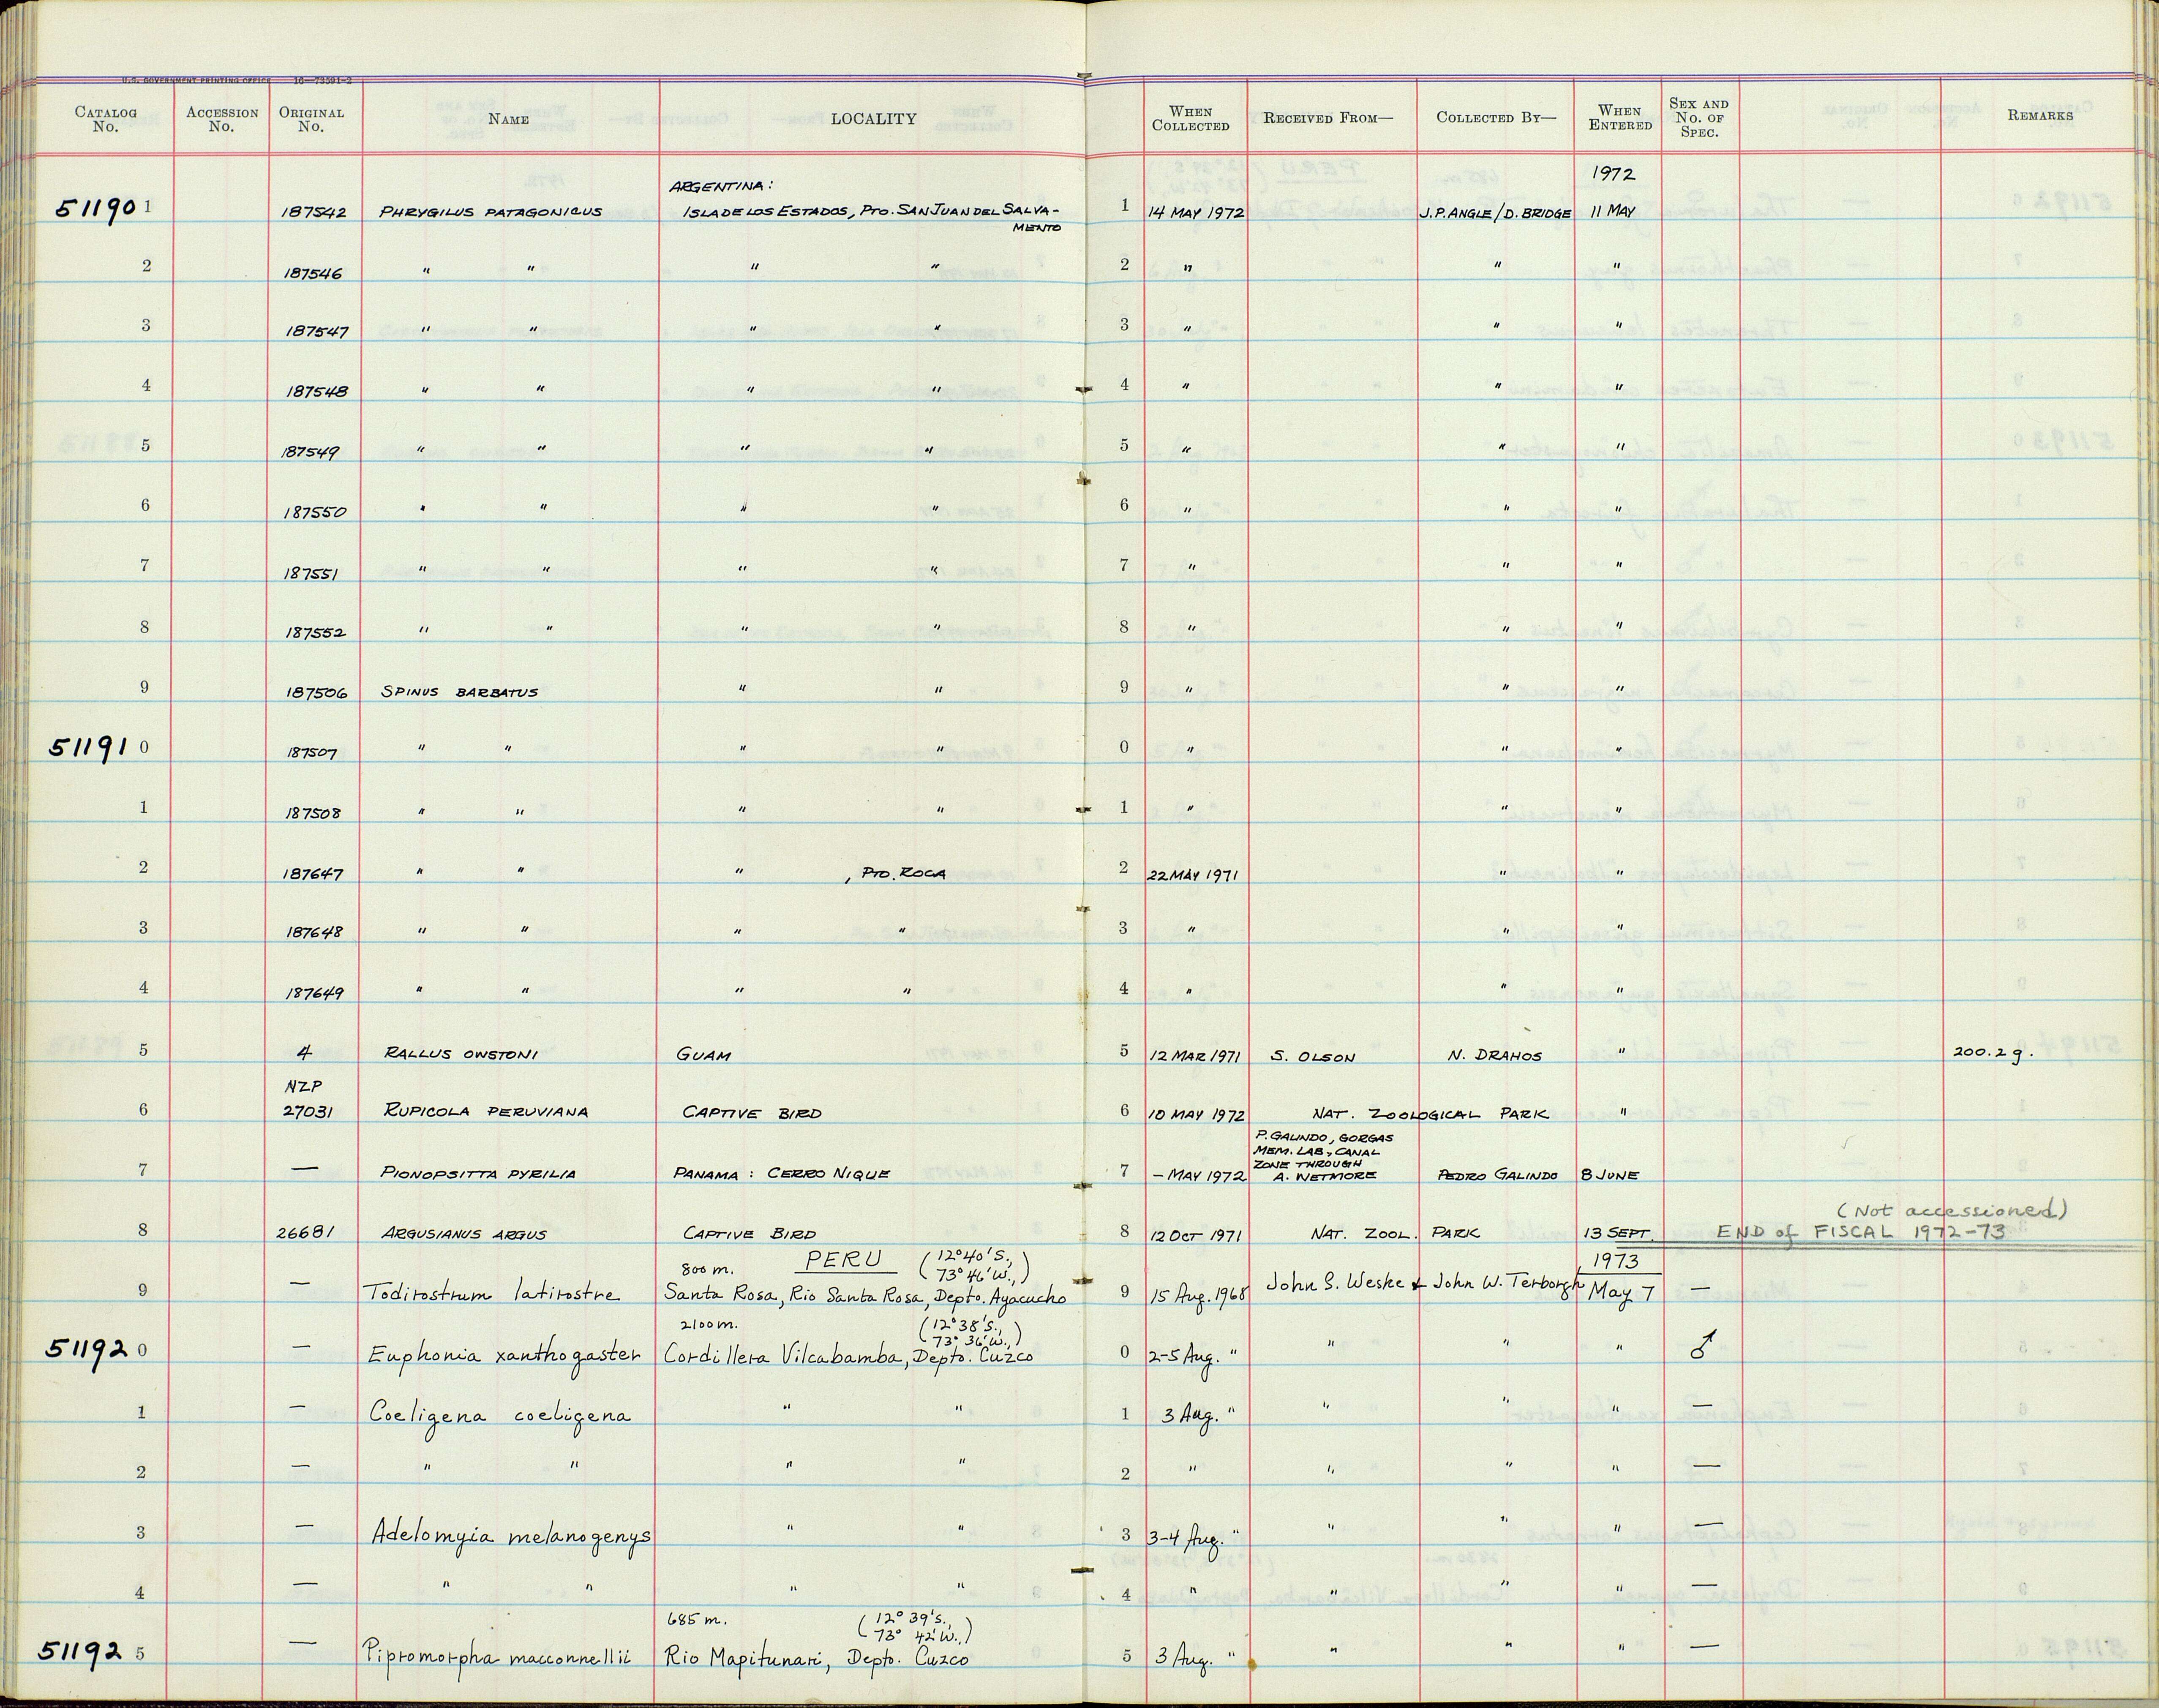 U.S. GOVERNMENT PRINTING OFFICE 16—73591-2
CATALOG No. ACCESSION No. ORIGINAL No. NAME LOCALITY WHEN COLLECTED RECEIVED FROM— COLLECTED BY— WHEN ENTERED SEX AND No. OF SPEC. REMARKS
ARGENTINA: 1972
51190 1 187542 PHRYGILUS PATAGONICUS ISLA DE LOS ESTADOS, PTO. SAN JUAN DEL SALVA- 1 14 MAY 1972 J.P. ANGLE/D. BRIDGE 11 MAY
MENTO
2 187546 " " " " 2 " " "
3 187547 " " " " 3 " " "
4 187548 " " " " 4 " " "
5 187549 " " " " 5 " " "
6 187550 " " " " 6 " " "
7 187551 " " " " 7 " " "
8 187552 " " " " 8 " " "
9 187506 SPINUS BARBATUS " " 9 " " "
51191 0 187507 " " " " 0 " " "
1 187508 " " " " 1 " " "
2 187647 " " " , PTO. ROCA 2 22 MAY 1971 " "
3 187648 " " " " 3 " " "
4 187649 " " " " 4 " " "
5 4 RALLUS OWSTONI GUAM 5 12 MAR 1971 S. OLSON N. DRAHOS " 200.2 g.
NZP
6 27031 RUPICOLA PERUVIANA CAPTIVE BIRD 6 10 MAY 1972 NAT. ZOOLOGICAL PARK "
P. GALINDO, GORGAS
MEM. LAB, CANAL
ZONE THROUGH
7 — PIONOPSITTA PYRILIA PANAMA : CERRO NIQUE 7 — MAY 1972 A. WETMORE PEDRO GALINDO 8 JUNE
(Not accessioned)
8 26681 ARGUSIANUS ARGUS CAPTIVE BIRD 8 12 OCT 1971 NAT. ZOOL. PARK 13 SEPT. END of FISCAL 1972-73
800 m. PERU (12°40'S., 73°46'W.,) 1973
9 — Todirostrum latirostre Santa Rosa, Rio Santa Rosa, Depto. Ayacucho 9 15 Aug. 1968 John S. Weske & John W. Terborgh May 7 —
2100 m. (12°38'S., 73°36'W.,)
51192 0 — Euphonia xanthogaster Cordillera Vilcabamba, Depto. Cuzco 0 2-5 Aug. " " " " ♂
1 — Coeligena coeligena " " 1 3 Aug. " " " " —
2 — " " " " 2 " " " " —
3 — Adelomyia melanogenys " " 3 3-4 Aug. " " " " —
4 — " " " " 4 " " " " —
685 m. (12° 39'S., 73° 42'W.,)
51192 5 — Pipromorpha macconnellii Rio Mapitunari, Depto. Cuzco 5 3 Aug. " " " " —